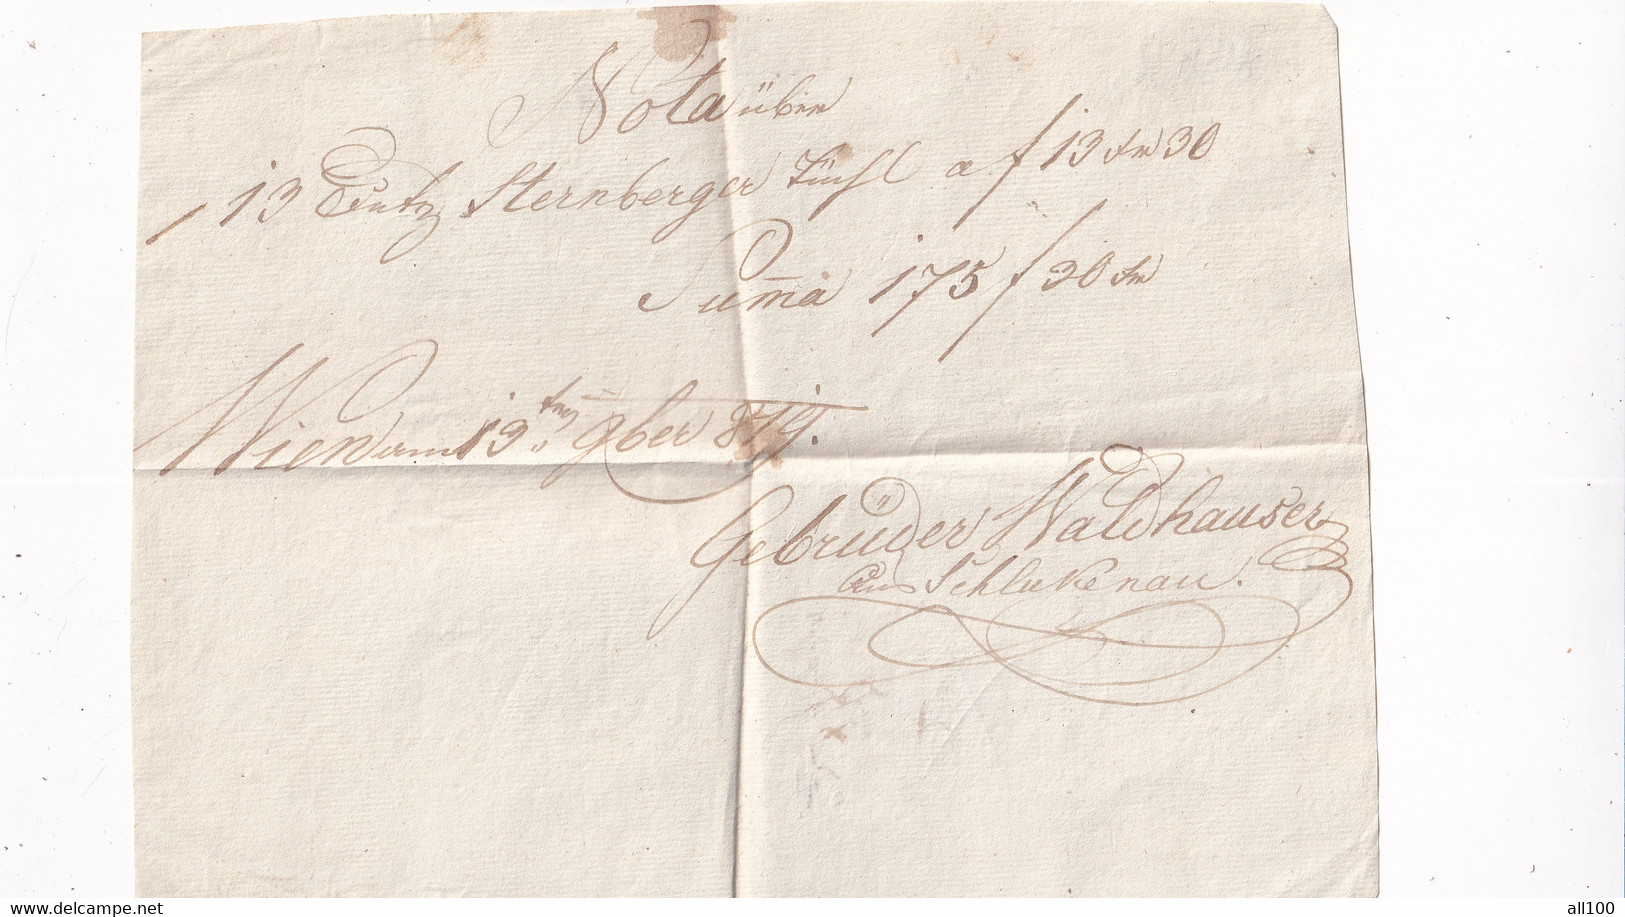 Nota über
13 Dutz Sternberger Tüchl a f 13 xr 30
Summa 175 f 30 xr
Wien am 19ten 9ber 819.
Gebrüder Waldhauser
aus Schlukenau.
delcampe.net
all100